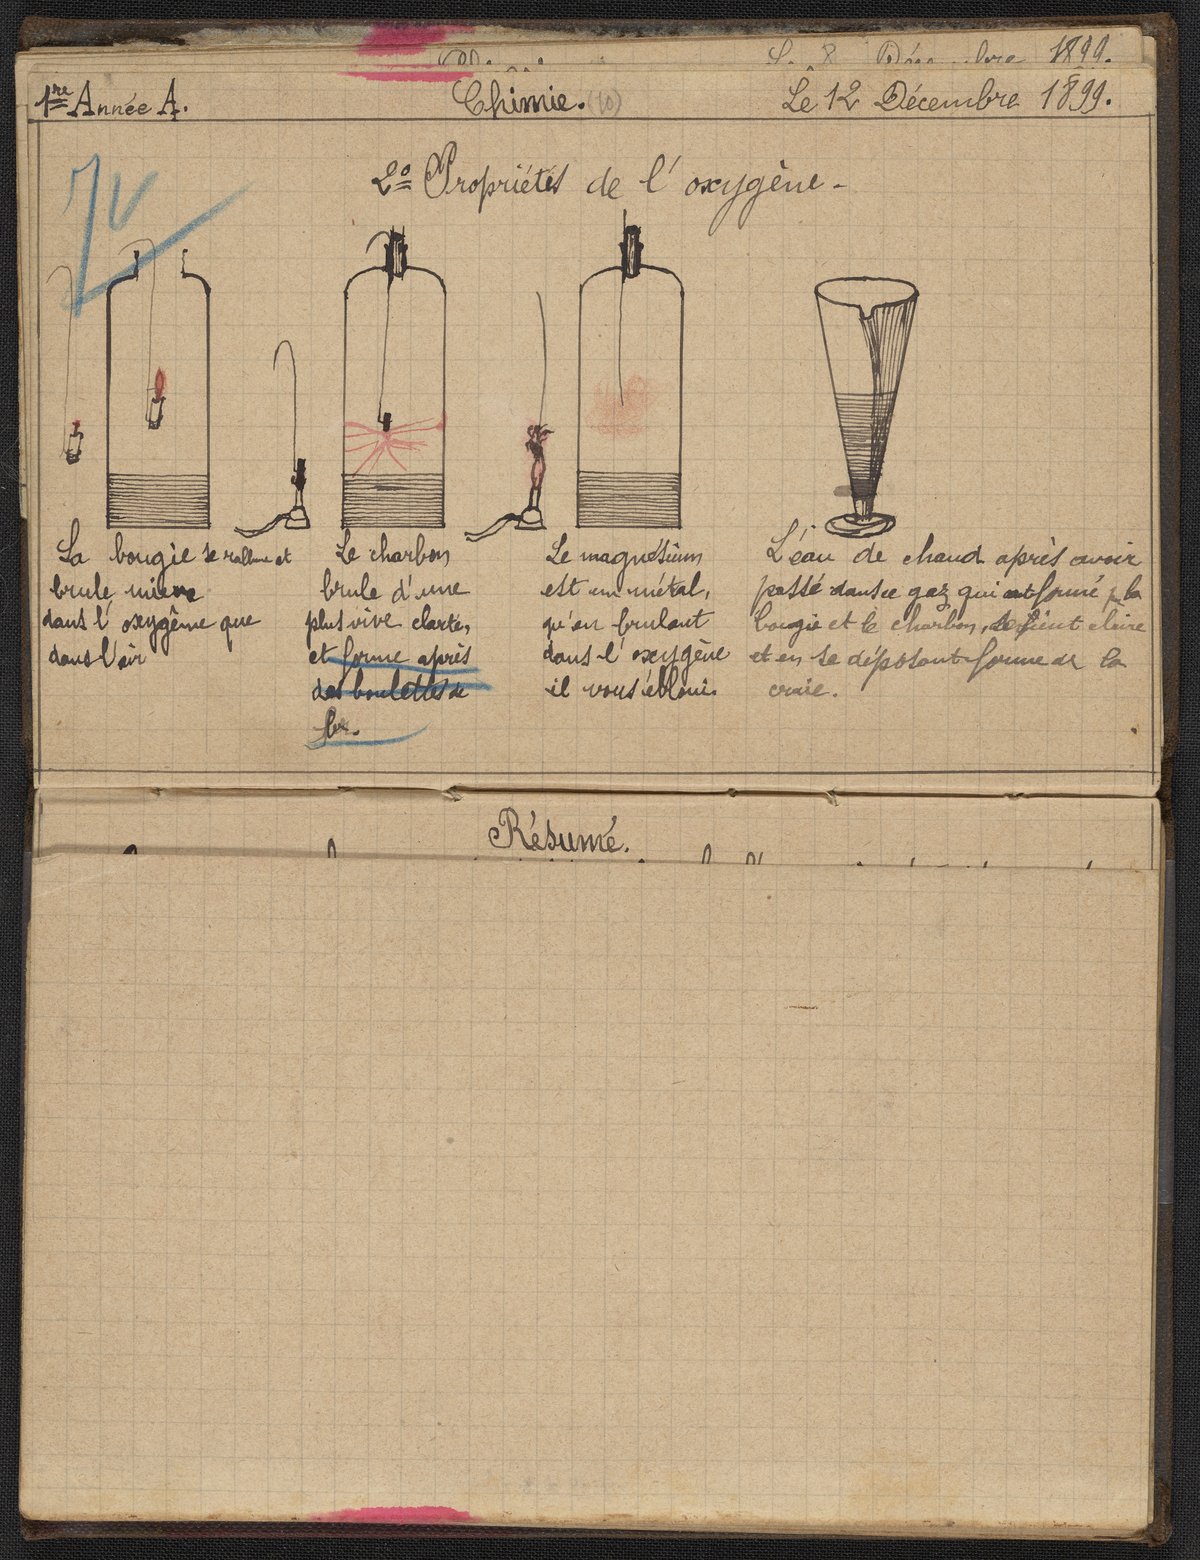 Le 8 Décembre 1899.
1re Année A. Chimie. (10) Le 12 Décembre 1899.
2o Propriétés de l'oxygène -
La bougie se rallume et
brule mieux
dans l'oxygène que
dans l'air
Le charbon
brule d'une
plus vive clarté,
et forme après
des boulettes de
fer.
Le magnésium
est un métal,
qu'en brulant
dans l'oxygène
il vous éblouis
L'eau de chaud après avoir
passé dans ce gaz qui est formé p. la
bougie et le charbon, devient claire
et en se déposant forme de la
craie.
Résumé.